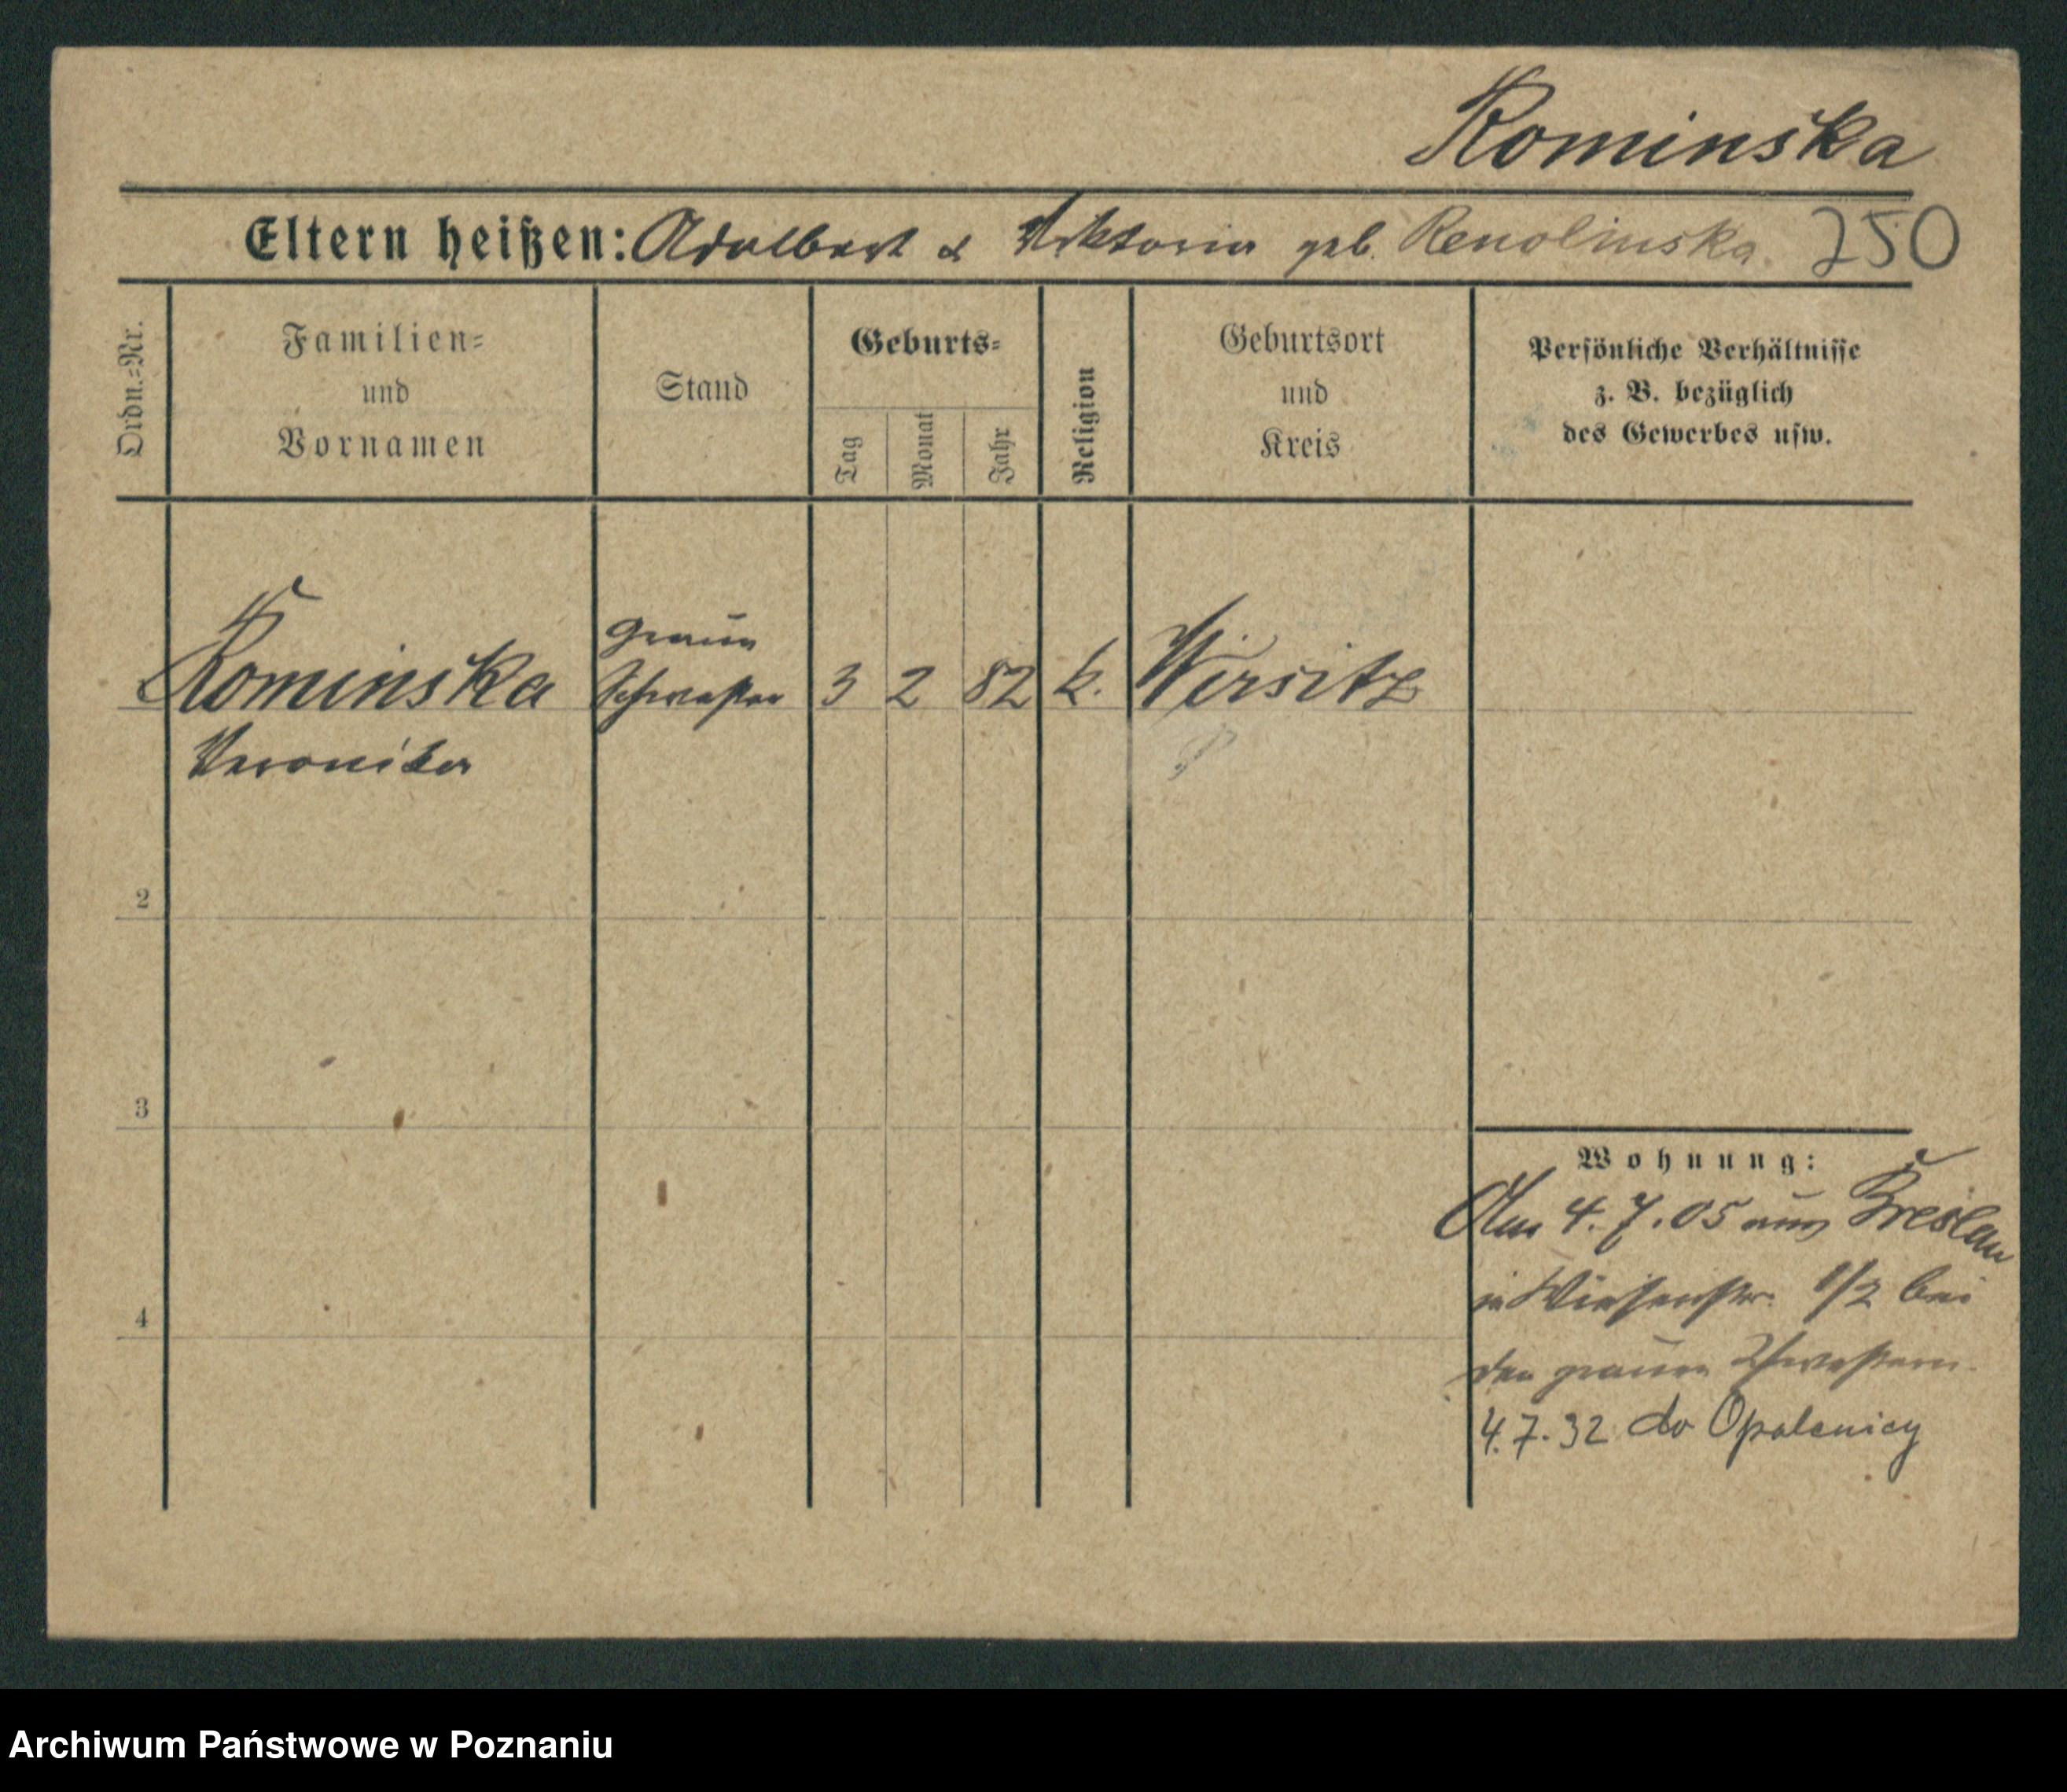 Kominska
Eltern heißen: Adalbert & Viktoria geb. Renolinska. 250
Ordn.=Nr.
Familien=
und
Vornamen
Stand
Geburts=
Tag
Monat
Jahr
Religion
Geburtsort
und
Kreis
Persönliche Verhältnisse
z. B. bezüglich
des Gewerbes usw.
Kominska
graue
Schwester
3 2 82 k. Wirsitz
Veronika
2
3
4
Wohnung:
Am 4.7.05 aus Breslau
in Wiesenstr. 1/2 bei
den grauen Schwestern.
4.7.32 do Opalenicy
Archiwum Państwowe w Poznaniu